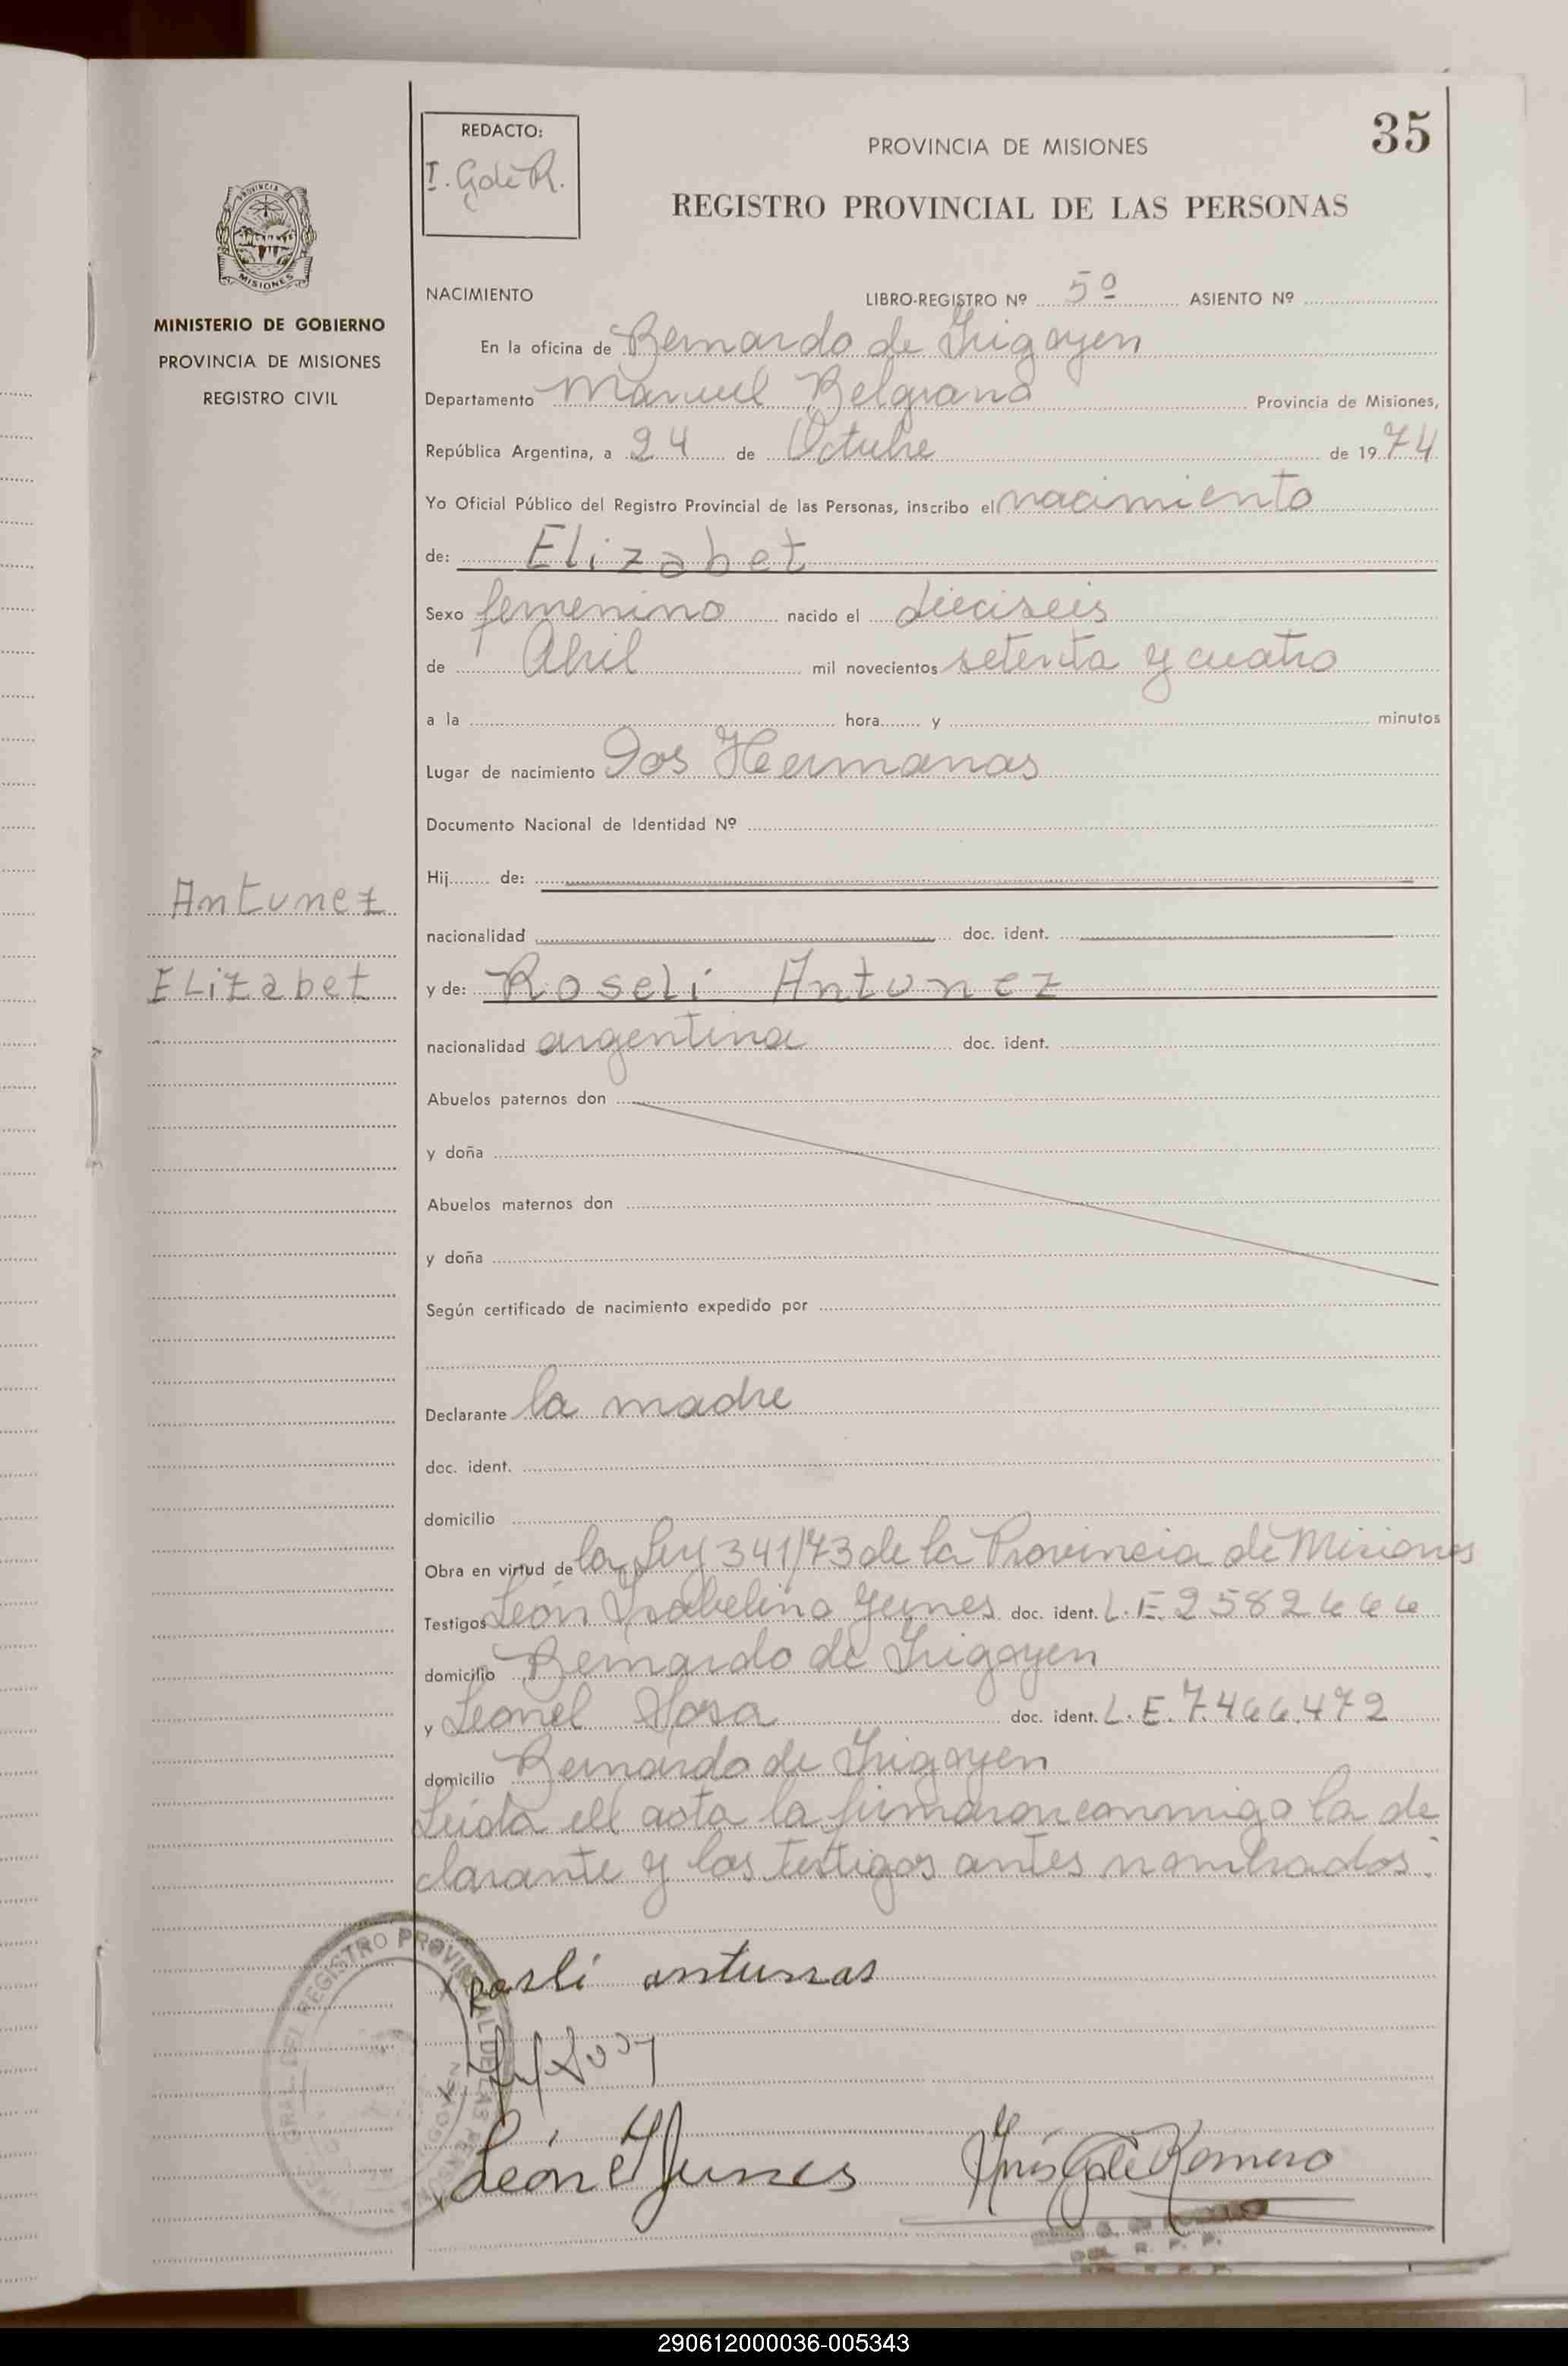 35
REDACTO:
I. G. de R.
PROVINCIA DE MISIONES
REGISTRO PROVINCIAL DE LAS PERSONAS
PROVINCIA
MISIONES
MINISTERIO DE GOBIERNO
PROVINCIA DE MISIONES
REGISTRO CIVIL
NACIMIENTO LIBRO-REGISTRO Nº 5º ASIENTO Nº
En la oficina de Bernardo de Irigoyen
Departamento Manuel Belgrano Provincia de Misiones,
República Argentina, a 24 de Octubre de 1974
Yo Oficial Público del Registro Provincial de las Personas, inscribo el nacimiento
de: Elizabet
Sexo femenino nacido el dieciseis
de Abril mil novecientos setenta y cuatro
a la hora y minutos
Lugar de nacimiento Dos Hermanas
Documento Nacional de Identidad Nº
Hij de:
nacionalidad doc. ident.
Antunez
Elizabet
y de: Roseli Antunez
nacionalidad argentina doc. ident.
Abuelos paternos don
y doña
Abuelos maternos don
y doña
Según certificado de nacimiento expedido por
Declarante la madre
doc. ident.
domicilio
Obra en virtud de la Ley 341/73 de la Provincia de Misiones
Testigos León Isabelino Yunes doc. ident. L.E 2582666
domicilio Bernardo de Irigoyen
y Leonel Sosa doc. ident. L.E. 7.466.472
domicilio Bernardo de Irigoyen
Leida el acta la firmaron conmigo la de
clarante y los testigos antes nombrados.
rosli antunas
León I Yunes
Inés G de Romero
DEL REGISTRO PROVINCIAL DE LAS
DEL R. P. P.
290612000036-005343